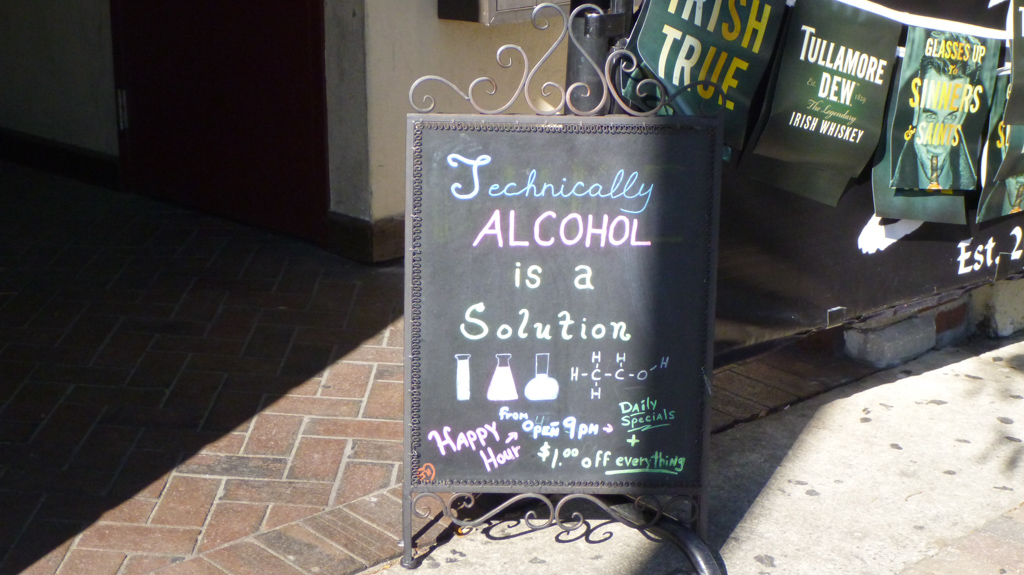 IRISH
TRUE
TULLAMORE
DEW.
The Legendary
IRISH WHISKEY
GLASSES UP
To
SINNERS
&
SAINTS
Est. 2
Technically
ALCOHOL
is a
Solution
H H H
H-C-C-O
H
HAPPY
Hour
from
Open 9pm
Daily
Specials
+
$1.00 off everything